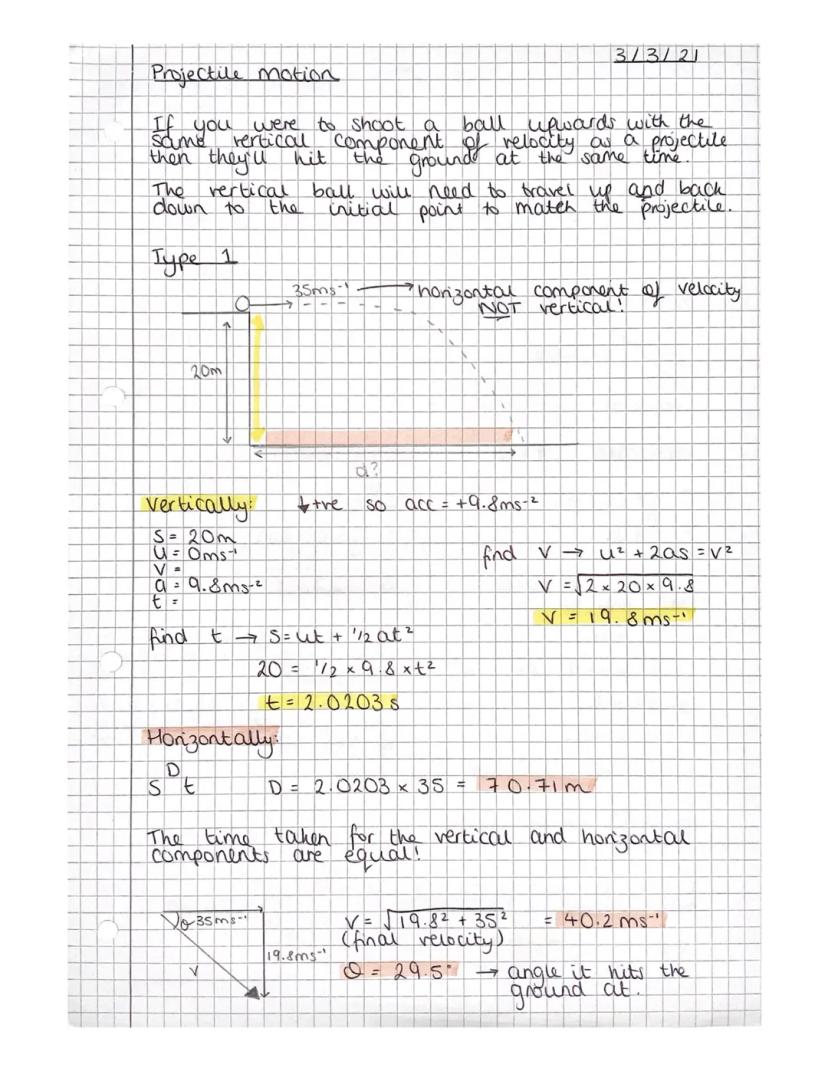 3/3/21
Projectile motion
If you were to shoot a ball upwards with the
same vertical component of velocity as a projectile
then they'll hit the ground at the same time.
The vertical ball will need to travel up and back
down to the initial point to match the projectile.
Type 1
35ms⁻¹ → horizontal component of velocity
NOT vertical!
20m
d?
Vertically: ↓+ve so acc = +9.8ms⁻²
S = 20m
U = 0ms⁻¹
V =
a = 9.8ms⁻²
t =
find V → u² + 2as = v²
V = √2 × 20 × 9.8
V = 19.8ms⁻¹
find t → S = ut + 1/2 at²
20 = 1/2 × 9.8 × t²
t = 2.0203 s
Horizontally:
D
S t D = 2.0203 × 35 = 70.71m
The time taken for the vertical and horizontal
components are equal!
θ 35ms⁻¹
V = √19.8² + 35² = 40.2 ms⁻¹
(final velocity)
19.8ms⁻¹
V
θ = 29.5° → angle it hits the
ground at.